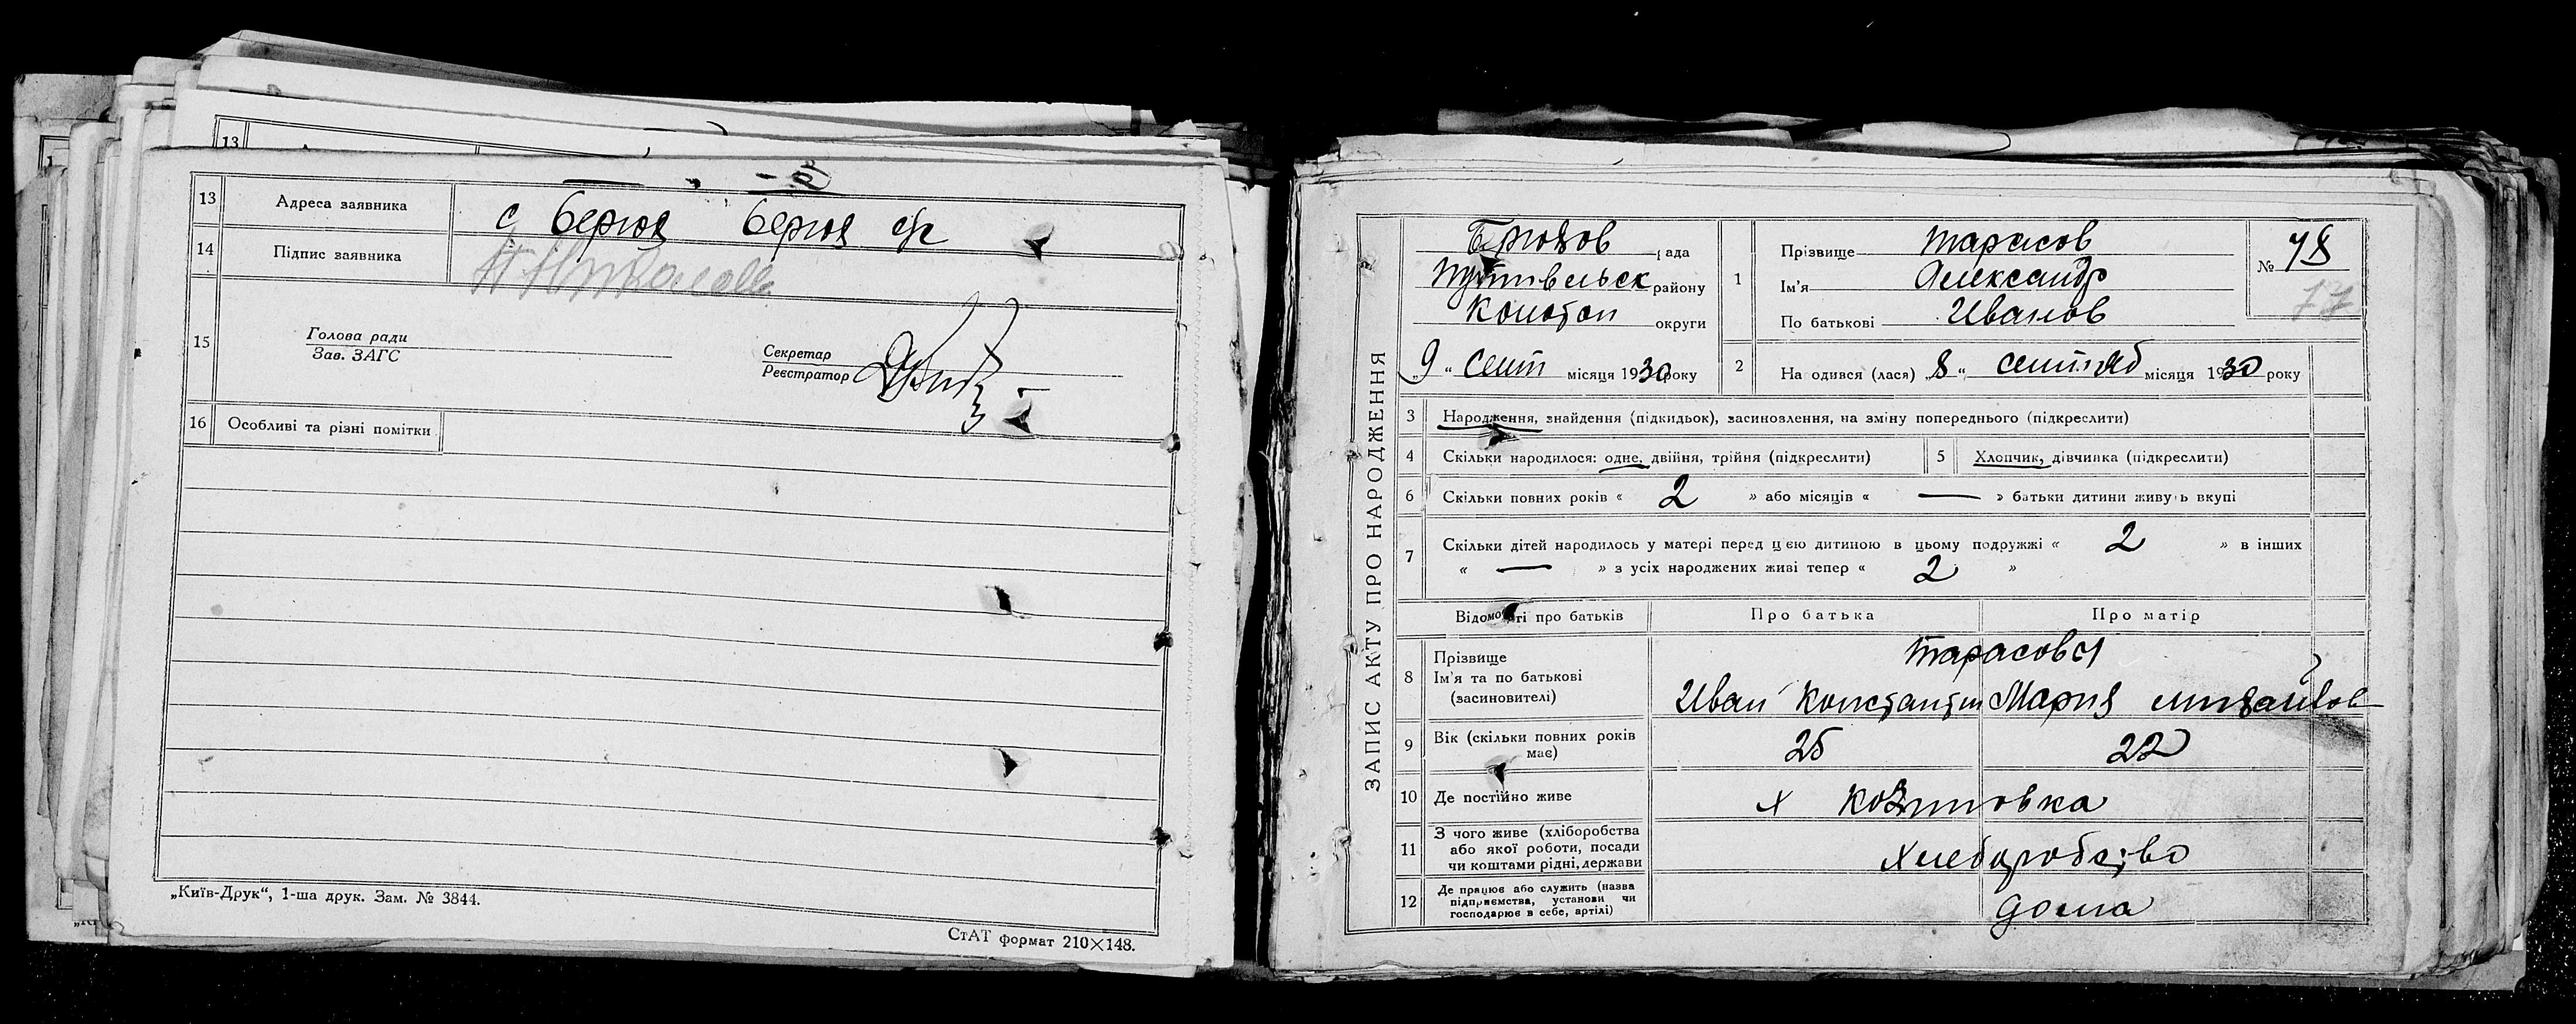 13
13 Адреса заявника с Берюх Берюх с/р
14 Підпис заявника
15 Голова ради
Зав. ЗАГС
Секретар
Реєстратор
16 Особливі та різні помітки
„Київ-Друк“, 1-ша друк. Зам. № 3844.
СтАТ формат 210×148.
ЗАПИС АКТУ ПРО НАРОДЖЕННЯ
рада
Путивельск району
Конотоп округи
„9“ сент місяця 1930 року
1 Прізвище Тарасов
Ім'я Александр
По батькові Иванов
№ 78
77
2 Народився (лася) „8“ сентяб місяця 1930 року
3 Народження, знайдення (підкидьок), засиновлення, на зміну попереднього (підкреслити)
4 Скільки народилося: одне, двійня, трійня (підкреслити) 5 Хлопчик, дівчинка (підкреслити)
6 Скільки повних років « 2 » або місяців « — » батьки дитини живуть вкупі
7 Скільки дітей народилось у матері перед цією дитиною в цьому подружжі « 2 » в інших
« — » з усіх народжених живі тепер « 2 »
Відомості про батьків Про батька Про матір
8 Прізвище Тарасовы
Ім'я та по батькові Иван Константин Мария Михайлов
(засиновителі)
9 Вік (скільки повних років 25 22
має)
10 Де постійно живе х
11 З чого живе (хліборобства
або якої роботи, посади
чи коштами рідні, держави Хлеборобство
12 Де працює або служить (назва
підприємства, установи чи
господарює в себе, артілі) дома